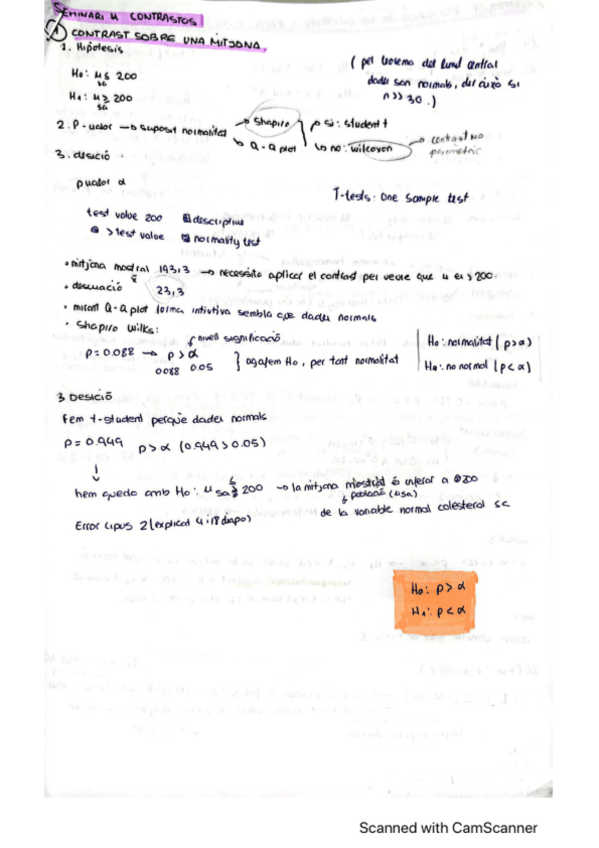 SEMINARI 4 CONTRASTOS
1 CONTRAST SOBRE UNA MITJANA.
1. Hipotesis
(pel teorema del limit central
dades son normals, del curs si
n>>30.)
H0: μ ≤ 200
sa
H1: μ ≥ 200
sa
2. P-valor → suposit normalitat
Shapiro
Q-Q plot
si: student t
no: wilcoxon
contrast no
parametric
3. desició
p valor α
T-tests: One sample test
test value 200 descriptius
> test value normality test
• mitjana mostral 193,3 → necessito aplicar el contrast per veure que μ es > 200.
x̄
• desviació 23,3
• mirant Q-Q plot forma intuitiva sembla que dades normals
• Shapiro Wilks:
nivell significació
p = 0.088 → p > α
0.088 0.05
} agafem H0, per tant normalitat
H0: normalitat (p > α)
H1: no normal (p < α)
3 DESICIÓ
Fem t-student perquè dades normals
p = 0.949 p > α (0.949 > 0.05)
↓
hem quedo amb H0: μ sa ≤ 200 → la mitjana mostral és inferior a 200
població (μsa)
de la variable normal colesterol sc
Error tipus 2 (explicat 4 i 18 diapo)
H0: p > α
H1: p < α
Scanned with CamScanner